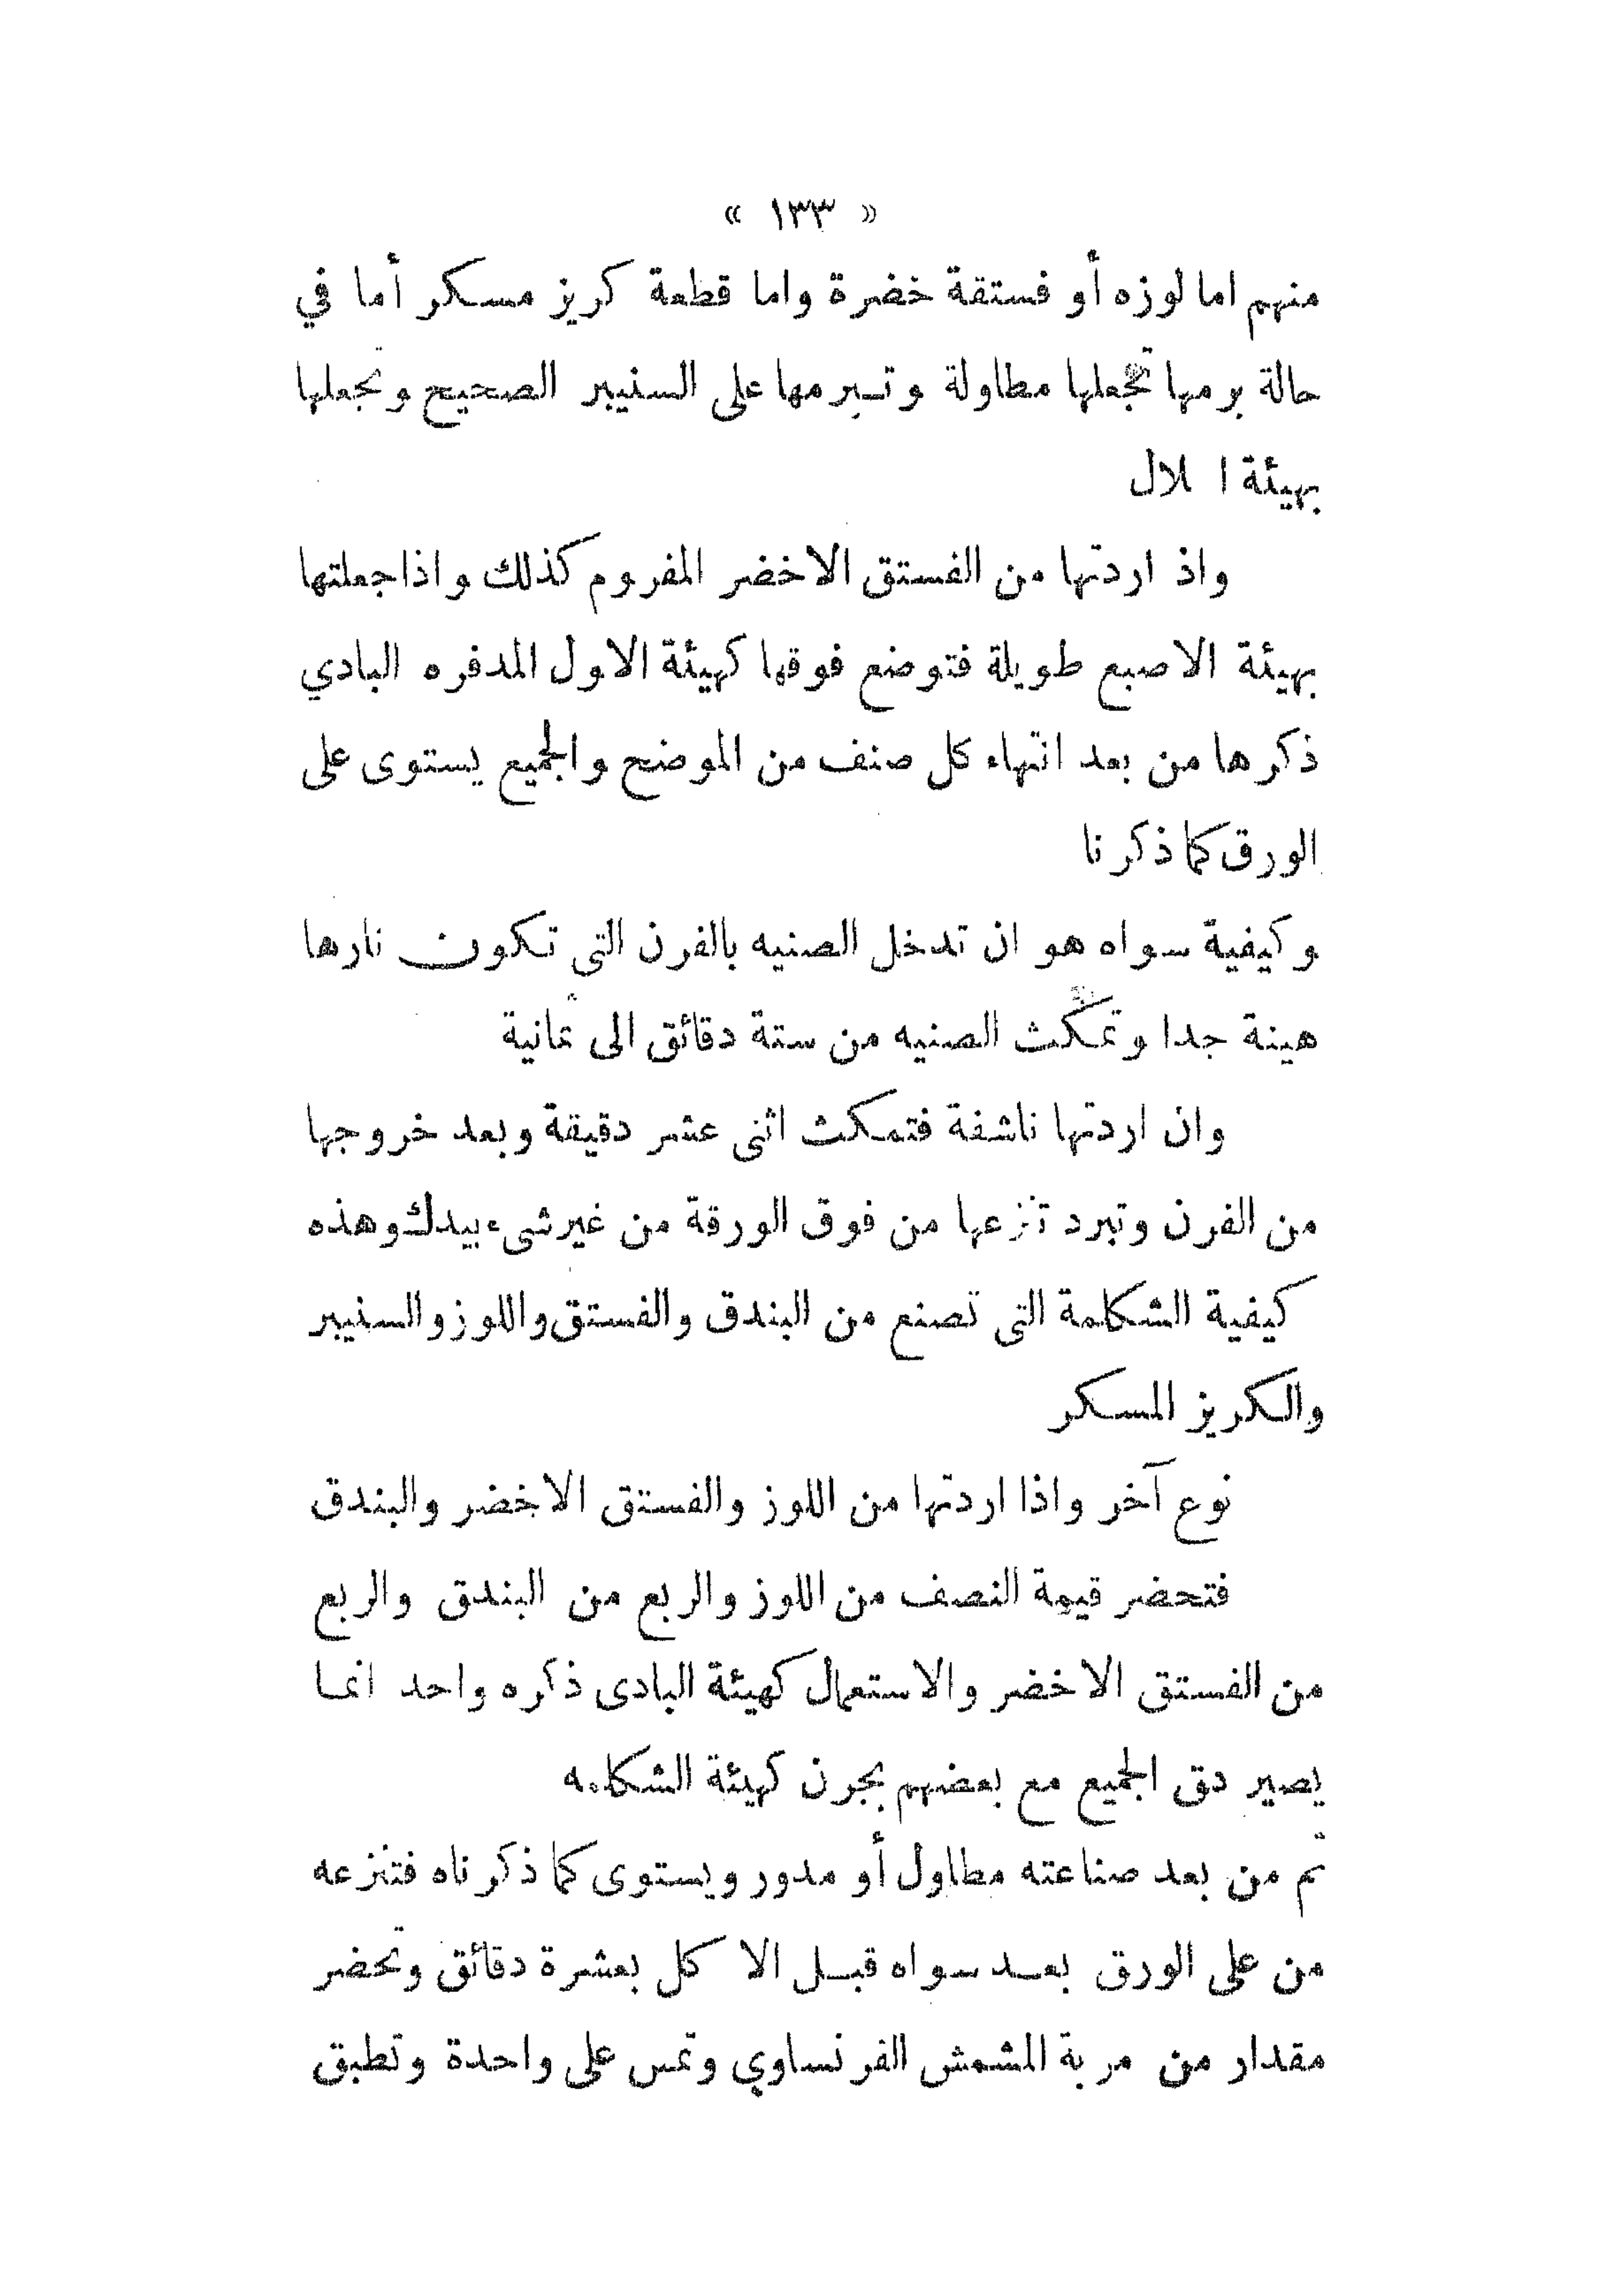 « ١٣٣ »
منهم اما لوزه أو فستقة خضرة واما قطعة كريز مسكر أما في
حالة برمها تجعلها مطاولة وتبرمها على السنيبر الصحيح وتجعلها
بهيئة ا لال
واذ اردتها من الفستق الاخضر المفروم كذلك واذا جعلتها
بهيئة الاصبع طويلة فتوضع فوقها كهيئة الاول المدفره البادي
ذكرها من بعد انتهاء كل صنف من الموضح والجميع يستوى على
الورق كما ذكرنا
وكيفية سواه هو ان تدخل الصنيه بالفرن التى تكون نارها
هينة جدا وتمكث الصنيه من ستة دقائق الى ثمانية
وان اردتها ناشفة فتمكث اثنى عشر دقيقة وبعد خروجها
من الفرن وتبرد تنزعها من فوق الورقة من غير شىء بيدك وهذه
كيفية الشكلمة التى تصنع من البندق والفستق واللوز والسنيبر
والكريز المسكر
نوع آخر واذا اردتها من اللوز والفستق الاخضر والبندق
فتحضر قيمة النصف من اللوز والربع من البندق والربع
من الفستق الاخضر والاستعمال كهيئة البادى ذكره واحد انما
يصير دق الجميع مع بعضهم بجرن كهيئة الشكلمه
ثم من بعد صناعته مطاول أو مدور ويستوى كما ذكرناه فتنزعه
من على الورق بعد سواه قبل الاكل بعشرة دقائق وتحضر
مقدار من مربة المشمش الفرنساوي وتمس على واحدة وتطبق